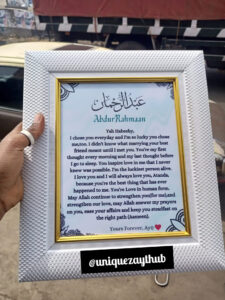 عبدالرحمان
AbdurRahmaan
Yah Habeeby,
I chose you everyday and I'm so lucky you chose
me,too. I didn't know what marrying your best
friend meant until I met you. You're my first
thought every morning and my last thought before
I go to sleep. You inspire love in me that I never
knew was possible. I'm the luckiest person alive.
I love you and I will always love you, Atanda,
because you're the best thing that has ever
happened to me. You're Love in human form.
May Allah continue to strengthen you(for me),and
strengthen our love, may Allah answer my prayers
on you, ease your affairs and keep you steadfast on
the right path (Aameen).
Yours Forever, Ayo ❤
@uniquezaythub